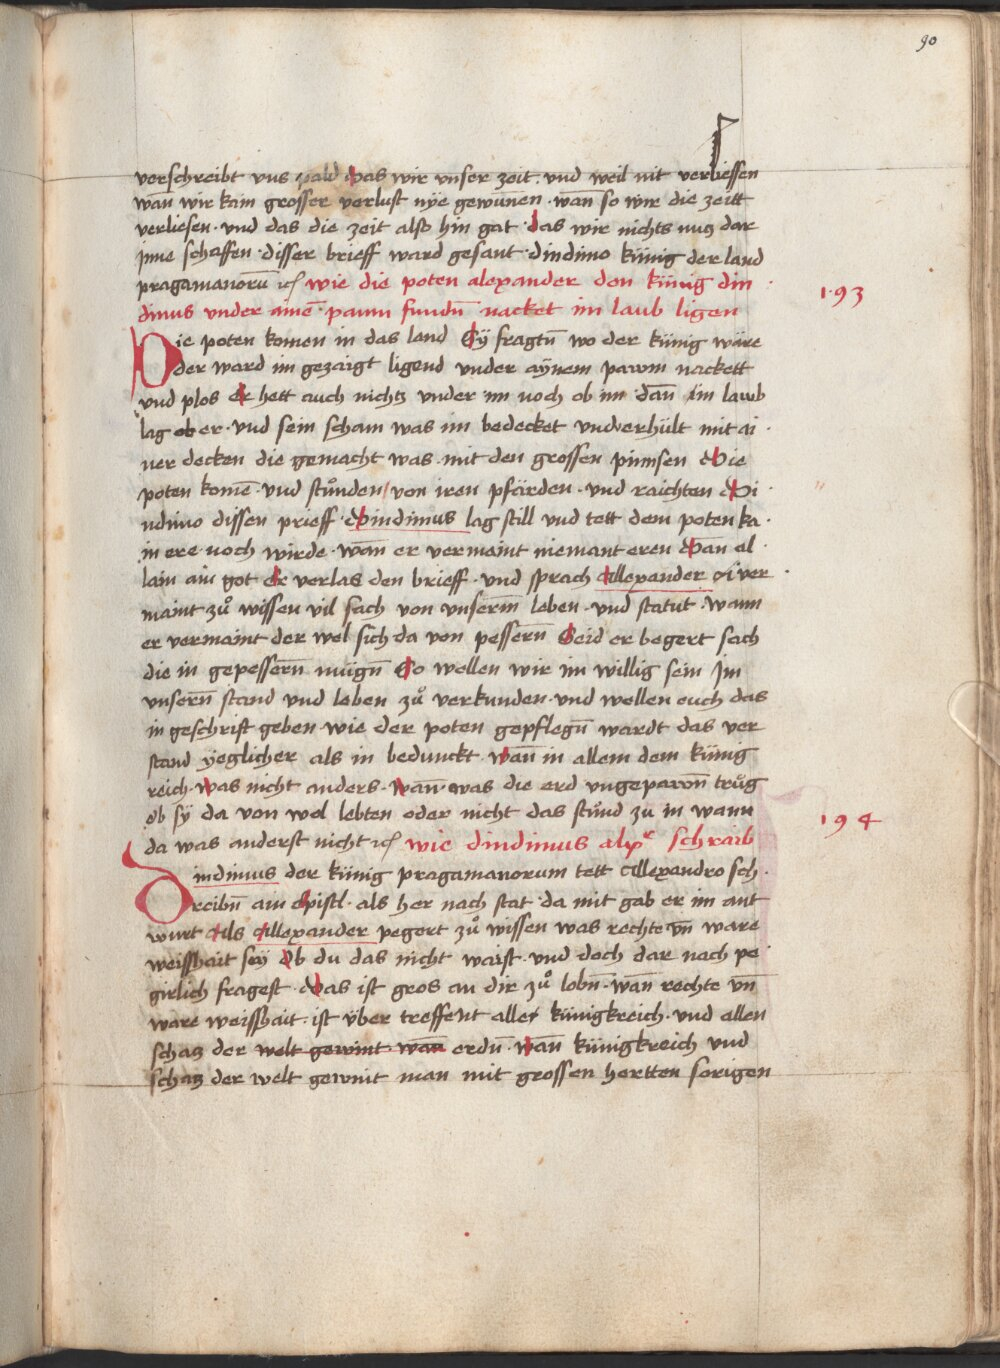 90
verschreibt vns pald Das wir vnser zeit · vnd weil nit verliessen
wan̄ wir kain grosser verlust nÿe gewunen · wan̄ so wir die zeitt
verliesen · vnd das die zeit also hin gat · das wir nichts nutz dar
jnne schaffen · disser brieff ward gesant · dindimo künig der land
pragamanorū ꝛc wie die poten alexander den künig din
dimus vnder ainē · paum fundn̄ nacket im laub ligen
193
Die poten komen in das land Sÿ fragtn̄ wo der künig wäre
der ward im gezaigt ligend vnder aÿnem pawm nackett
vnd plos Er hett auch nichtz vnder im noch ob im dan̄ im laub
lag er · vnd sein scham was im bedecket vnd verhült mit ai
ner decken die gemacht was · mit den grossen pinnsen Die
poten komē · vnd stůnden von iren pfärden · vnd raichten Di
ndimo dissen prieff · Dindimus lag still vnd tett dem poten ka
in ere noch wirde · wan̄ er vermaint niemant eren Dan al
lain ain got Er verlas den brieff · vnd sprach Allexander ver
maint zů wissen vil sach von vnserm̄ leben · vnd statut · wann
er vermaint der wel sich da von pessern̄ Seid er begert sach
die in gepessern̄ mügn̄ So wellen wir im willig sein Im
vnsern̄ stand vnd leben zů verkunden · vnd wellen euch das
in geschrift geben · wie der poten gepflegn̄ wardt das ver
stand ÿeglicher als in bedunckt · wan̄ in allem dem künig
reich · was nicht anders · wan̄ · was die erd vngeparon̄ trůg
ob sÿ da von wol lebten oder nicht das stůnd zu in wann
da was anderst nicht ꝛc wie dindimus alxͬ schraib
194
Dindimus der künig pragamanorum tett Allexandro sch
reibn̄ ain Epistl · als her nach stat · da mit gab er im ant
wurt Als Allexander pegert zů wissen was rechte vn̄ ware
weisshait seÿ Ob du das nicht waist · vnd doch dar nach pe
girlich fragest · Das ist gros an dir zů lobn̄ · wan̄ rechte vn̄
ware weisshait · ist über treffent aller künigkreich · vnd allen
schatz der welt gewint · wan̄ erdn̄ · wan̄ künigkreich vnd
schatz der welt gewint man mit grossen hertten sorigen